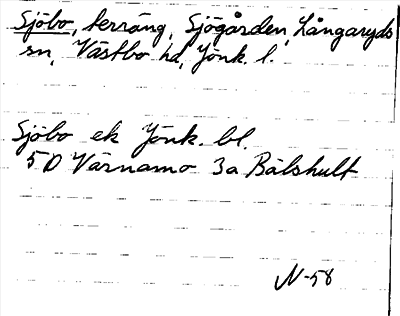 Sjöbo, terräng, Sjögården, Långaryds
sn, Västbo hd, Jönk. l.
Sjöbo ek Jönk. bl.
5D Värnamo 3a Bälshult
N-58